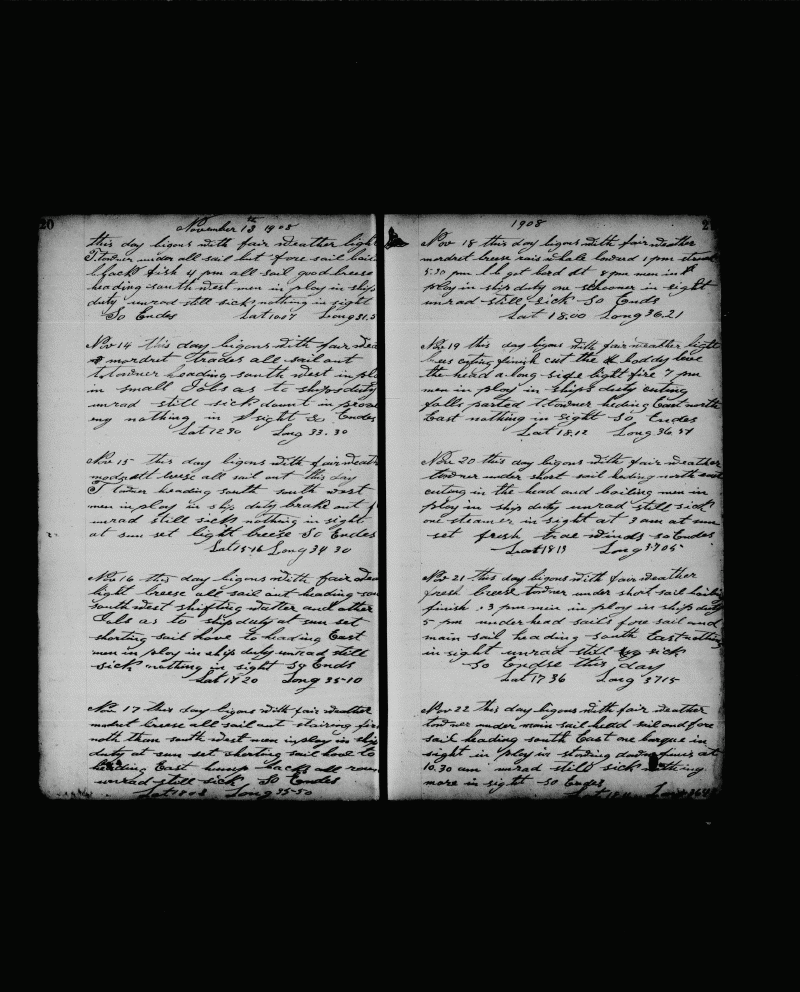 20
November 13th 1908
this day bigons with fair weather light
T. towner under all sail but fore sail
black fish 4 pm all sail good breese
heading south west men in ploy in ship
duty unrad still sick nothing in sight
So Endes Lat Long
Nov 14 this day bigons with fair wea
mordret trades all sail out
t. towner heading south west in plo
in small Jobs as to ships duty
unrad still sick
nothing in sight So Endes
Lat 12 30 Long 33.30
Nov 15 this day bigons with fair weath
breese all sail out this day
T towner heading south south west
men in ploy in ship duty brake out
unrad still sick nothing in sight
at sun set light breese So Endes
Lat 15-16 Long 34 30
Nov 16 this day bigons with fair wea
light breese all sail out heading sou
south west shifting watter and other
Jobs as to ship duty at sun set
shorting sail hove to heading East
men in ploy in ship duty unrad still
sick nothing in sight So Ends
Long 35-10
Nov 17 this day bigons with fair weather
modret breese all sail out
noth than south west men in ploy in ship
duty at sun set shorting sail hove to
heading East
unrad still sick So Endes
Lat 18-08 Long 35-50
1908
2
Nov 18 this day bigons with fair weather
mordret breese rais whale loward 1 pm struck
5.30 pm got bord at 8 pm men in
ploy in ship duty one schooner in sight
unrad still sick So Ends
Lat 18.00 Long 36.21
Nov 19 this day bigons with fair weather light
finish cut the boddy love
the head a long side light fire 7 pm
men in ploy in ships duty cuting
falls parted t. towner heding East north
East nothing in sight So Endes
Lat 18.12 Long 36.51
Nov 20 this day bigons with fair weather
towner under short sail heding north east
cuting in the head and boiling men in
ploy in ship duty unrad still sick
one steamer in sight at 3 am at sun
set fresh trae winds so Endes
Lat 18 19 Long 37.05
Nov 21 this day bigons with fair weather
fresh breese towner under short sail boiling
finish .3 pm men in ploy in ship duty
5 pm under head sails fore sail and
main sail heading south East nothing
in sight unrad still sick
So Endse this day
Lat 17 36 Long 37 15
Nov 22 this day bigons with fair weather
towner under main sail hedd sail and fore
sail heading south East one barque in
sight in ploy in
10.30 am unrad still sick nothing
more in sight So Endes